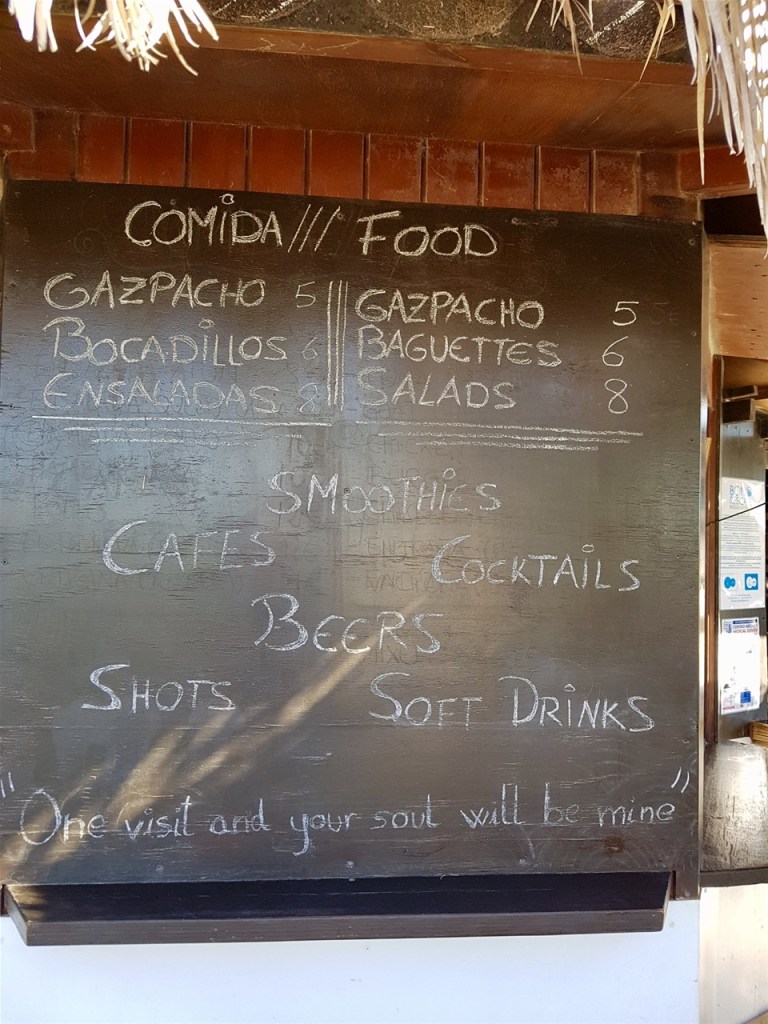 COMIDA /// FOOD
GAZPACHO 5 ||| GAZPACHO 5
BOCADILLOS 6 ||| BAGUETTES 6
ENSALADAS 8 ||| SALADS 8
SMOOTHIES
CAFES COCKTAILS
BEERS
SHOTS SOFT DRINKS
"One visit and your soul will be mine"